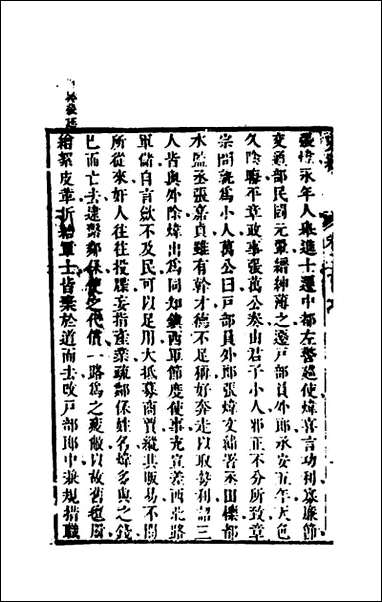 張煒永年人舉進士遷中都左警巡使煒喜言功利寡廉節
交通部民閻元翬縉紳薄之遷戶部員外郎承安五年天色
久陰晦平章政事張萬公奏山君子小人邪正不分所致章
宗問孰爲小人萬公曰戶部員外郎張煒文繡署丞田櫟都
水監丞張嘉貞雖有幹才德不足稱好奔走以取勢利詔三
人皆與外除煒出爲同知鎮西軍節度使事充宣差西北路
軍儲自言斂不及民可以足用大抵募商賈縱其販易不問
所從來奸人往往投牒妄指產業疏鄰保姓名煒多與之錢
已而亡去逮繫鄰保使之代償一路爲之疲敝以故舊氊罽
給絮皮革折給軍士皆棄於道而去改戶部郎中兼規措職